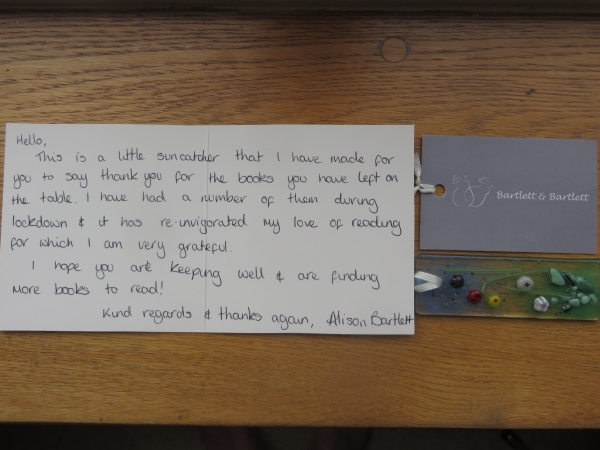 Hello,
This is a little suncatcher that I have made for
you to say thank you for the books you have left on
the table. I have had a number of them during
lockdown & it has re-unvigorated my love of reading
for which I am very grateful.
I hope you are keeping well & are finding
more books to read!
Kind regards & thanks again, Alison Bartlett
Bartlett & Bartlett